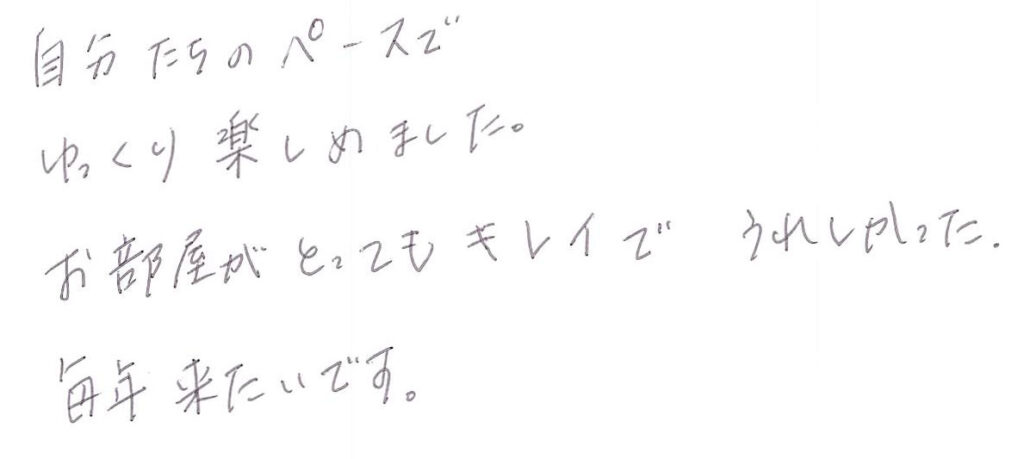 自分たちのペースで
ゆっくり楽しめました。
お部屋がとってもキレイで うれしかった.
毎年来たいです。